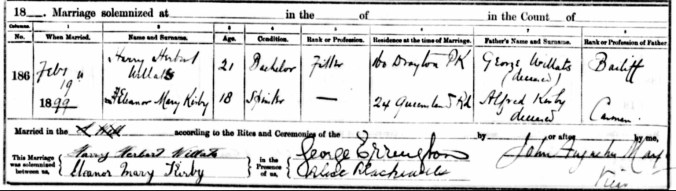 18 Marriage solemnized at in the of in the Count of
Columns 1 2 3 4 5 6 7 8
No. When Married. Name and Surname. Age. Condition. Rank or Profession. Residence at the time of Marriage. Father's Name and Surname. Rank or Profession of Father.
186 Feby 19th 1899 Harry Herbert Willats 21 Bachelor Fitter 160 Drayton Pk George Willats (deceased) Bailiff
Eleanor Mary Kirby 18 Spinster — 24 Queensland Rd Alfred Kirby deceased Carman
Married in the according to the Rites and Ceremonies of the by or after by me,
This Marriage was solemnized between us, Harry Herbert Willats in the Presence of us, George Errington John Augustus
Eleanor Mary Kirby